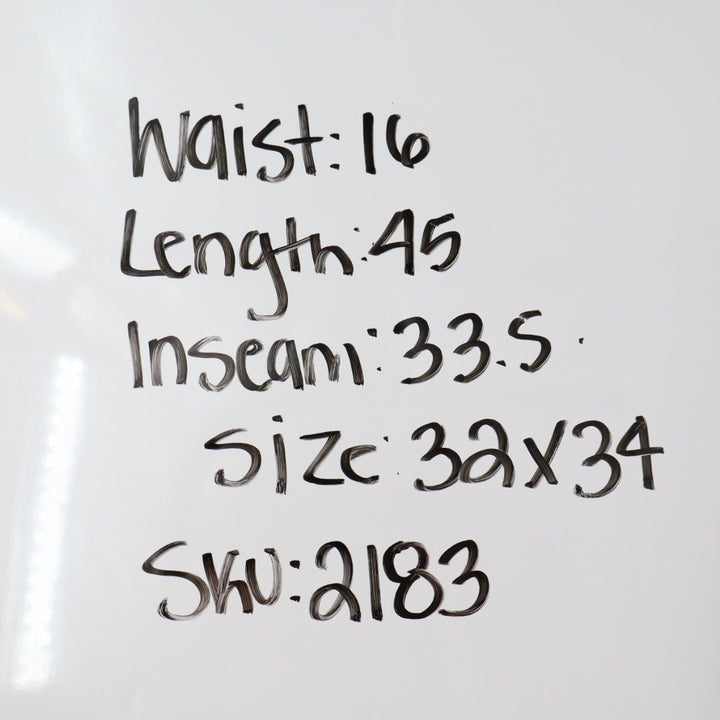 Waist: 16
Length: 45
Inseam: 33.5
Size: 32x34
SKU: 2183